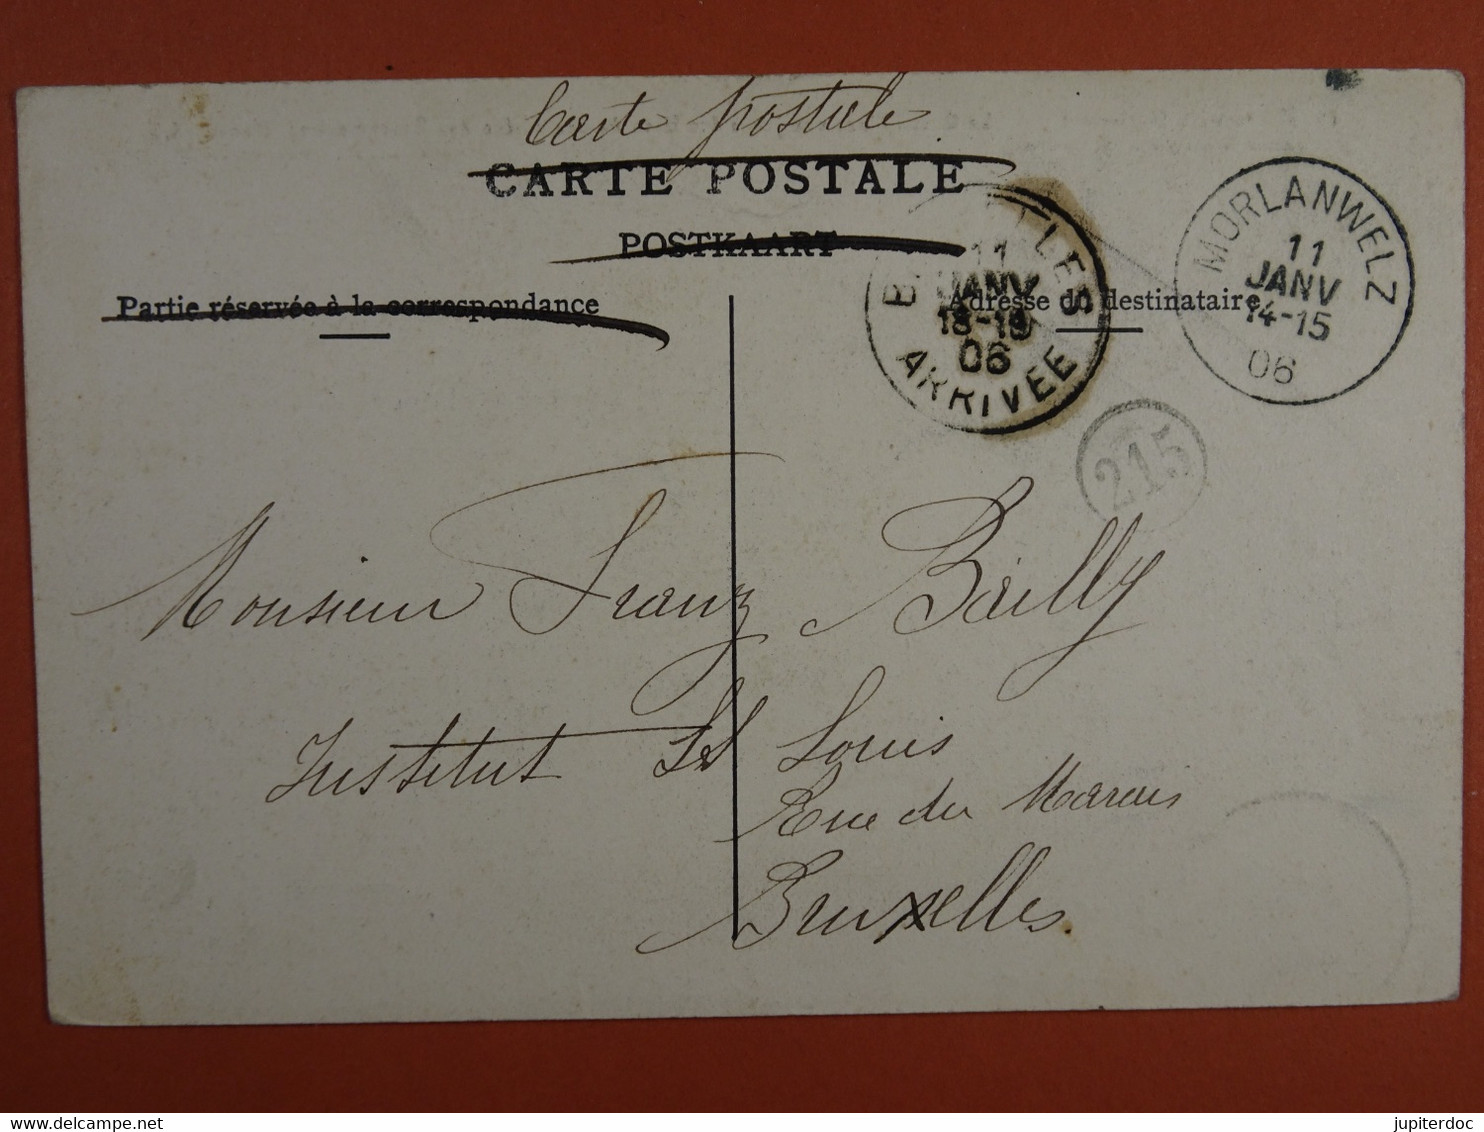 Carte postale
CARTE POSTALE
POSTKAART
Partie réservée à la correspondance
Adresse du destinataire
MORLANWELZ
11
JANV
14-15
06
11
JANV
18-19
06
ARRIVÉE
215
Monsieur Franz Bailly
Institut St Louis
Rue du Marais
Bruxelles.
jupiterdoc
delcampe.net